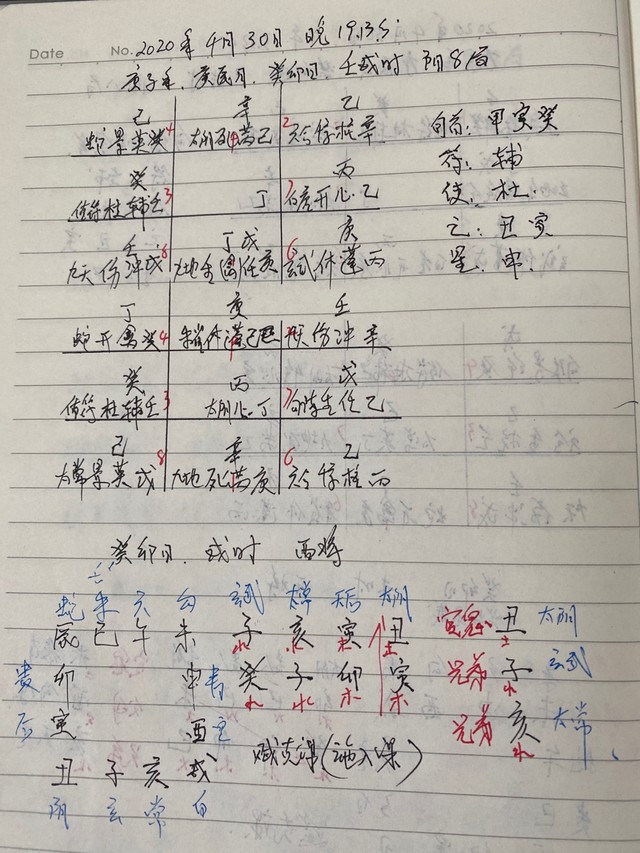 Date No. 2020年4月30日 晚 19.13分
庚子年. 庚辰月. 癸卯日 壬戌时 阴8局
己 辛 乙
蛇景英癸 4 太阴死芮己 2 六合惊柱辛 旬首: 甲寅癸
癸 丙 符: 辅
值符杜辅壬 3 丁 7 白虎开心乙 使: 杜.
壬 丁戊 庚 空: 丑寅
九天伤冲戊 8 九地生禽任庚 6 玄武休蓬丙 星: 申.
丁 庚 壬
蛇开禽癸 4 休 伤冲辛
癸 丙 戊
值符杜辅壬 3 太阴心丁 7 生任乙
己 辛 乙
太常景英戊 8 九地死芮庚 6 六合惊柱丙
癸卯日. 戌时 酉将
蛇 朱 六 勾 玄武 太常 天后 太阴
辰 巳 午 未 子 亥 寅 丑 官鬼 丑 太阴
水 水 木 土 土
贵 卯 申 青 癸 子 卯 寅 兄弟 子 玄武
水 水 木 木 水
后 寅 酉 空 兄弟 亥 太常
水
丑 子 亥 戌 贼克课
阴 玄 常 白